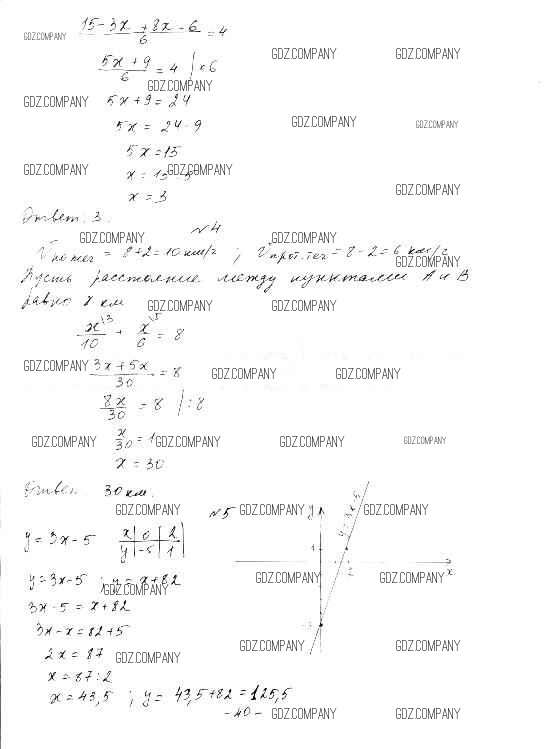 15 - 3x + 8x - 6 / 6 = 4
GDZ.COMPANY GDZ.COMPANY GDZ.COMPANY
5x + 9 / 6 = 4 | × 6
GDZ.COMPANY
GDZ.COMPANY 5x + 9 = 24
5x = 24 - 9 GDZ.COMPANY GDZ.COMPANY
5x = 15
GDZ.COMPANY x = 15 GDZ.COMPANY
x = 3 GDZ.COMPANY
Ответ: 3.
№4
GDZ.COMPANY GDZ.COMPANY
V по теч = 8+2=10 км/г ; V прот.теч = 8-2=6 км/г
GDZ.COMPANY
Пусть расстояние между пунктами А и В
равно x км
GDZ.COMPANY GDZ.COMPANY
x\3 / 10 + x\5 / 6 = 8
GDZ.COMPANY 3x + 5x / 30 = 8 GDZ.COMPANY GDZ.COMPANY
8x / 30 = 8 | : 8
GDZ.COMPANY x / 30 = 1 GDZ.COMPANY GDZ.COMPANY GDZ.COMPANY
x = 30
Ответ: 30 км.
GDZ.COMPANY №5 GDZ.COMPANY y GDZ.COMPANY
y = 3x - 5
x | 0 | 2
y | -5 | 1
y = 3x - 5
1
2 x
y = 3x - 5 ; y = x + 82
GDZ.COMPANY GDZ.COMPANY GDZ.COMPANY
3x - 5 = x + 82
3x - x = 82 + 5
2x = 87 GDZ.COMPANY GDZ.COMPANY GDZ.COMPANY
x = 87 : 2
x = 43,5 ; y = 43,5 + 82 = 125,5
-40- GDZ.COMPANY GDZ.COMPANY